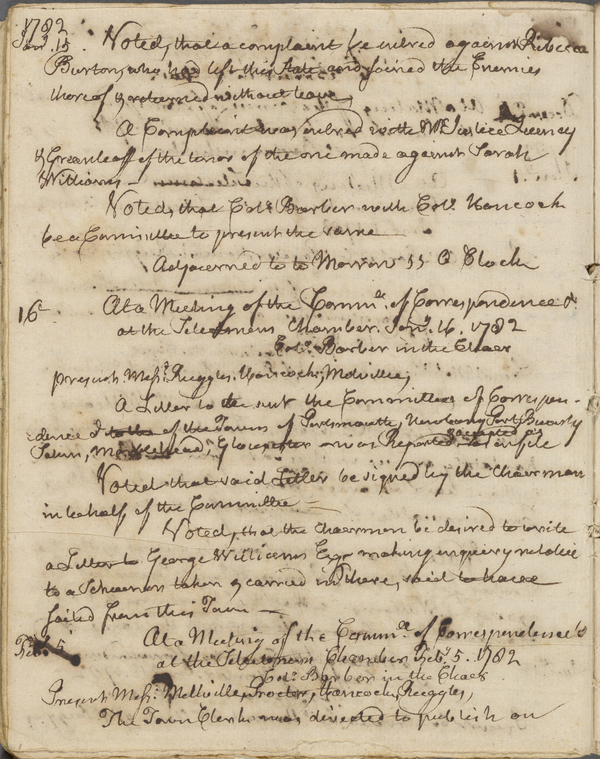 1782
Jany. 15 Voted, that a complaint be entred against Rebecca
Burton, who had left this State and joined the Enemies
thereof & returned without leave,
A Complaint was entred with Mr. Justice
& Greenleaff of the tenor of the one made against Sarah
Williams —
Voted, that Colo. Barber with Colo. Hancock
be a Committee to present the same
Adjourned to to Morrow 11 O Clock
16 At a Meeting of the Commee. of Correspondence &
at the Selectmens Chamber. Jany. 16. 1782
Colo. Barber in the Chair
present Messrs. Ruggles, Hancock, Melville,
A Letter to the Committees of Correspon-
dence of the Towns of Portsmouth, Newbury Port, Beverly
Salem, Marblehead, Glocester was Reported accepted as on file
Voted that said Letter be signed by the Chairman
in behalf of the Committee —
Voted, that the Chairman be desired to write
a Letter to George Williams Esqr. making enquiry relative
to a Schooner taken & carried in there, said to have
sailed from this Town —
Feby. 5 At a Meeting of the Commee. of Correspondence &
at the Selectmens Chamber Feby. 5. 1782
Colo. Barber in the Chair
Present Messrs. Mellville, Procter, Hancock, Ruggles,
The Town Clerk was directed to publish on